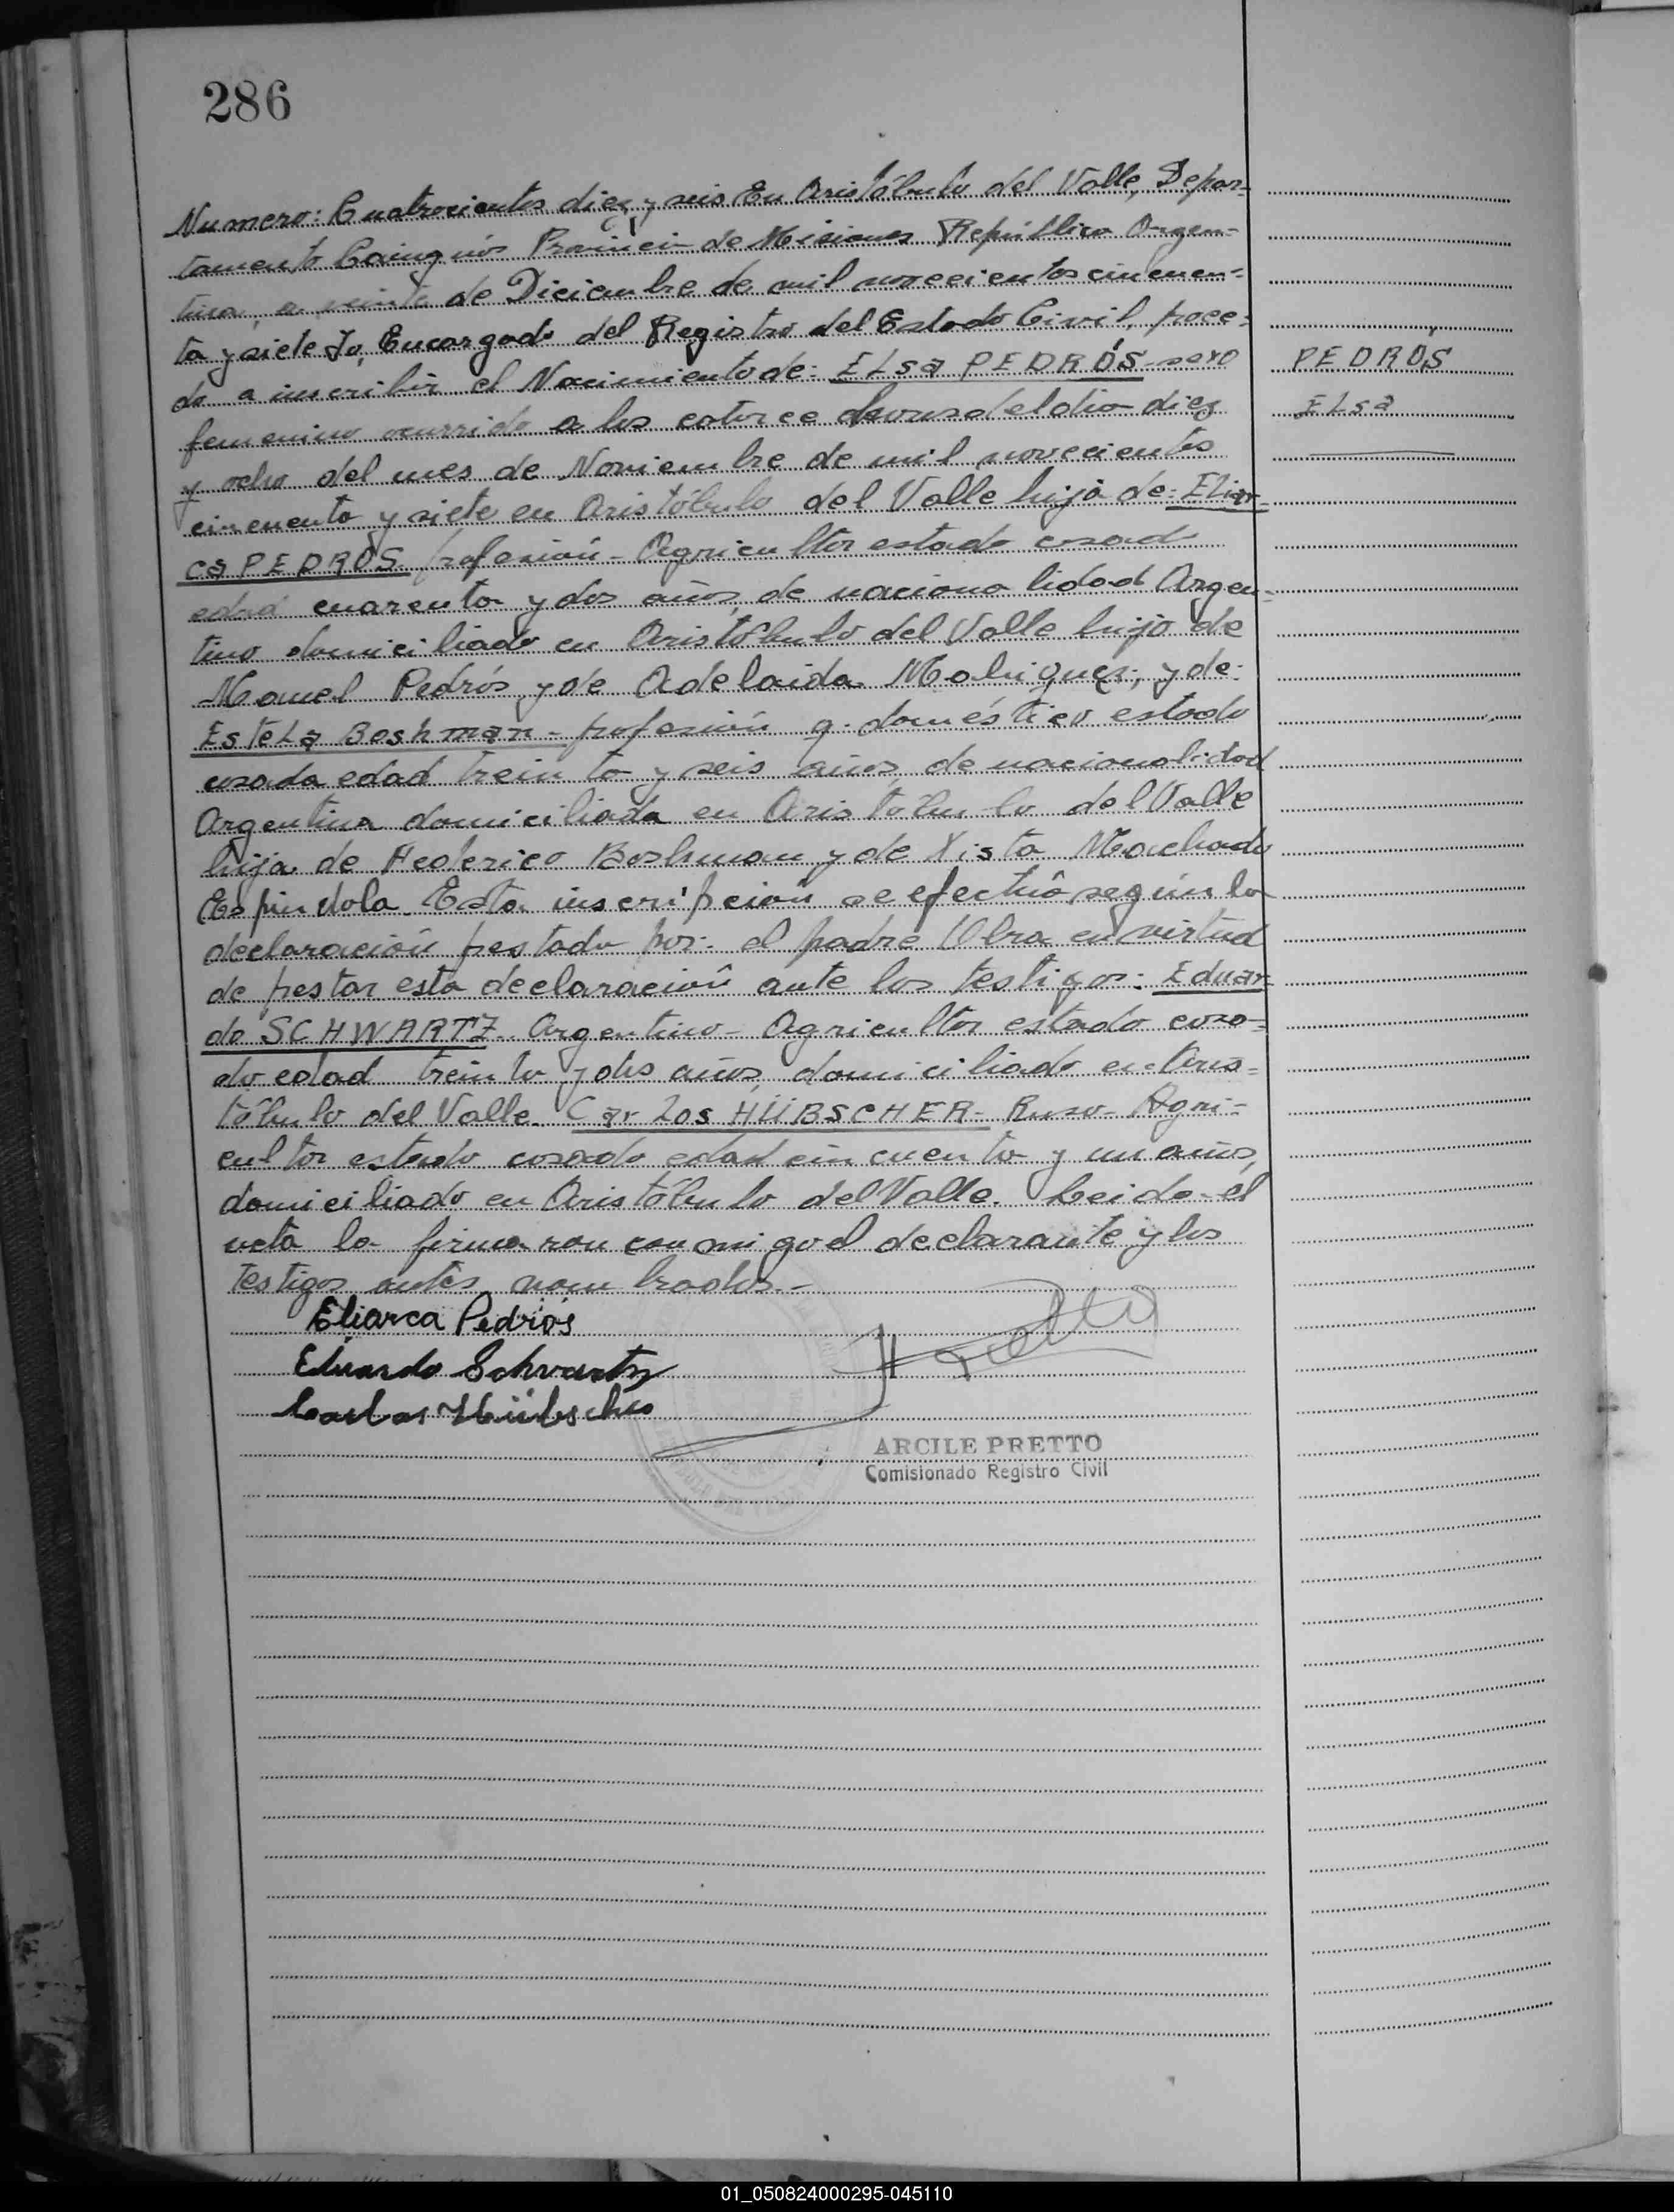 286
Numero: Cuatrocientos diez y seis En Aristóbulo del Valle, Depar-
tamento Cainguás Provincia de Misiones República Argen-
tina, a veinte de Diciembre de mil novecientos cincuen-
ta y siete Yo, Encargado del Registro del Estado Civil, proce-
do a inscribir el Nacimiento de: ELSa PEDRÓS sexo
PEDRÓS
femenino ocurrido a las catorce horas del dia diez
ELSa
y ocho del mes de Noviembre de mil novecientos
cincuenta y siete en Aristóbulo del Valle hija de: Eliar-
ca PEDRÓS profesión - Agricultor estado casado
edad cuarenta y dos años, de nacionalidad Argen-
tino domiciliado en Aristóbulo del Valle hijo de
Manuel Pedrós y de Adelaida y de:
EsteLa Boshman - profesión q. doméstico estado
casada edad treinta y seis años de nacionalidad
Argentina domiciliada en Aristóbulo del Valle
hija de Federico Boshman y de Xista Machado
Espindola. Esta inscripción se efectuó según la
declaración prestada por: el padre Obra en virtud
de prestar esta declaración ante los testigos: Eduar-
do SCHWARTZ. Argentino - Agricultor estado casa-
do edad treinta y dos años, domiciliado en Aris-
tóbulo del Valle. CarLos HÜBSCHER - Ruso - Agri-
cultor estado casado edad cincuenta y un años,
domiciliado en Aristóbulo del Valle. Leida el
acta la firmaron conmigo el declarante y los
testigos antes nombrados.-
Eliarca Pedrós
Eduardo Schvartz
Carlos Hübscher
ARCILE PRETTO
Comisionado Registro Civil
01_050824000295-045110